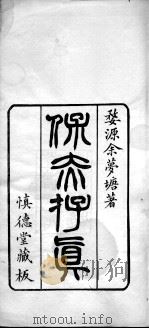 婺源余夢塘著
保赤存真
慎德堂藏板
mtoou.info